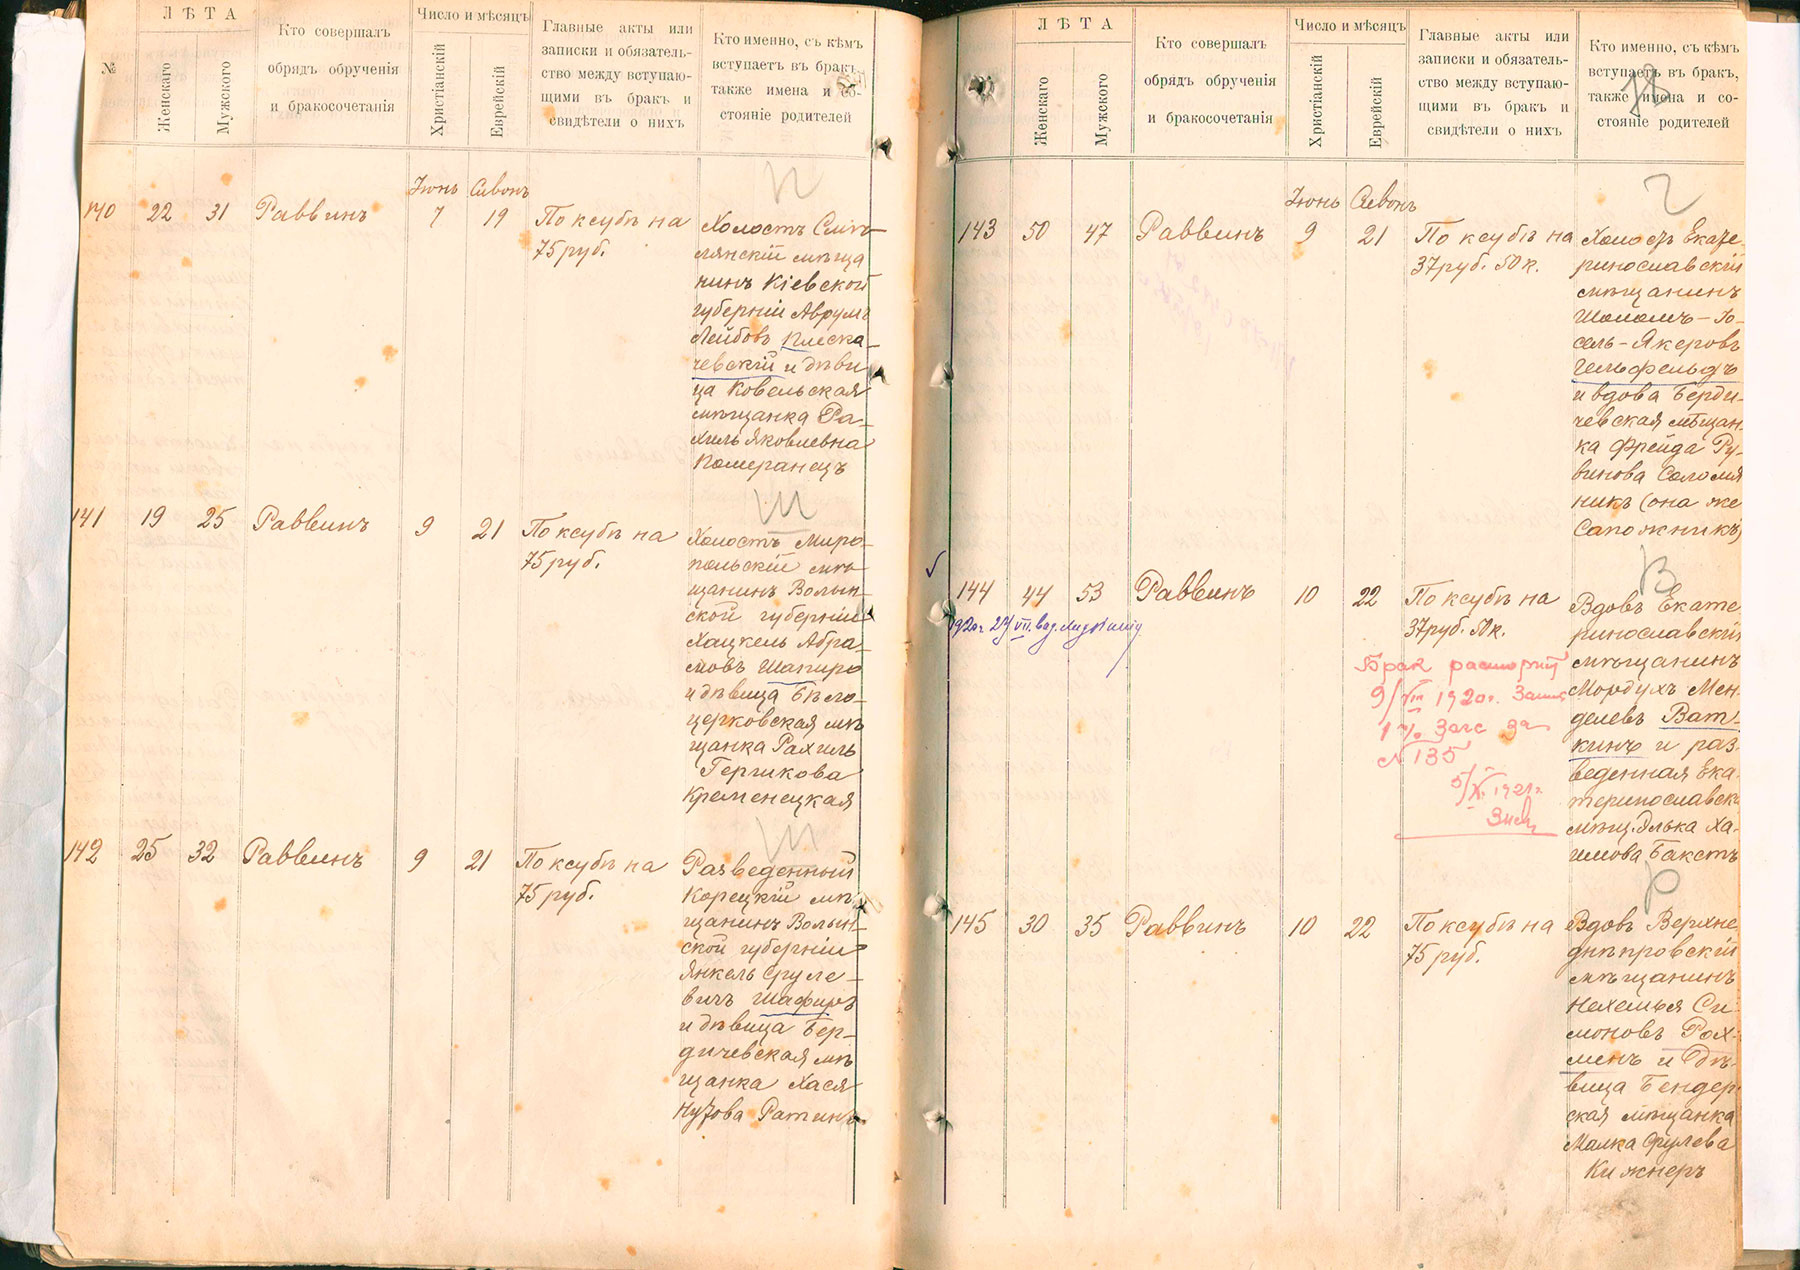 №
ЛѢТА
Женскаго
Мужского
Кто совершалъ
обрядъ обрученія
и бракосочетанія
Число и мѣсяцъ
Христіанскій
Еврейскій
Главные акты или
записки и обязатель-
ство между вступаю-
щими въ бракъ и
свидѣтели о нихъ
Кто именно, съ кѣмъ
вступаетъ въ бракъ,
также имена и со-
стояніе родителей
П
Іюнь Сивонъ
140 22 31 Раввинъ 7 19 По ксубѣ на
75 руб.
Холостъ Смѣ-
лянскій мѣща
нинъ Кіевской
губерніи Аврумъ
Лейбовъ Плиска-
чевскій и дѣви
ца Ковельская
мѣщанка Ра-
хиль Яковлевна
Померанецъ
Ш
141 19 25 Раввинъ 9 21 По ксубѣ на
75 руб.
Холостъ Миро-
польскій мѣ
щанинъ Волын-
ской губерніи
Хацкель Абра-
мовъ Шапиро
и дѣвица Бѣло-
церковская мѣ
щанка Рахиль
Гершкова
Кременецкая
Ш
142 25 32 Раввинъ 9 21 По ксубѣ на
75 руб.
Разведенный
Корецкій мѣ
щанинъ Волын-
ской губерніи
Янкель Сруле-
вичъ Шафиръ
и дѣвица Бер-
дичевская мѣ
щанка Хася
Нузова Ратинъ
ЛѢТА
Женскаго
Мужского
Кто совершалъ
обрядъ обрученія
и бракосочетанія
Число и мѣсяцъ
Христіанскій
Еврейскій
Главные акты или
записки и обязатель-
ство между вступаю-
щими въ бракъ и
свидѣтели о нихъ
Кто именно, съ кѣмъ
вступаетъ въ бракъ,
также имена и со-
стояніе родителей
78
Г
Іюнь Сивонъ
143 50 47 Раввинъ 9 21 По ксубѣ на
37 руб. 50 к.
Холостъ Екате-
ринославскій
мѣщанинъ
Шолом-Іо-
сель-Якеровъ
Гельфельдъ
и вдова Берди-
чевская мѣщан
ка Фрейда Ру-
винова Соломя
никъ (она же
Сапожникъ)
В
144 44 53 Раввинъ 10 22 По ксубѣ на
37 руб. 50 к.
1920 г. 27/VII.
Брак расторгнут
9/VIII 1920 г.
Загс за
№ 135
5/X 1921 г.
Вдовъ Екате
ринославскій
мѣщанинъ
Мордухъ Мен-
делевъ Ват-
кинъ и раз-
веденная Ека-
теринославск.
мѣщ. Элька Ха-
имова Бакстъ
Р
145 30 35 Раввинъ 10 22 По ксубѣ на
75 руб.
Вдовъ Верхне
днѣпровскій
мѣщанинъ
Нехемья Си-
моновъ Рох-
менъ и дѣ-
вица Бендер
ская мѣщанка
Малка Срулева
Кижнеръ